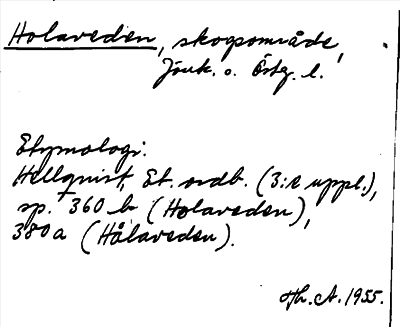 Holaveden, skogsområde,
Jönk. o. Östg. l.
Etymologi:
Hellquist, Et. ordb. (3:e uppl.),
sp. 360 b (Holaveden),
380 a (Hålaveden).
Th. A. 1955.